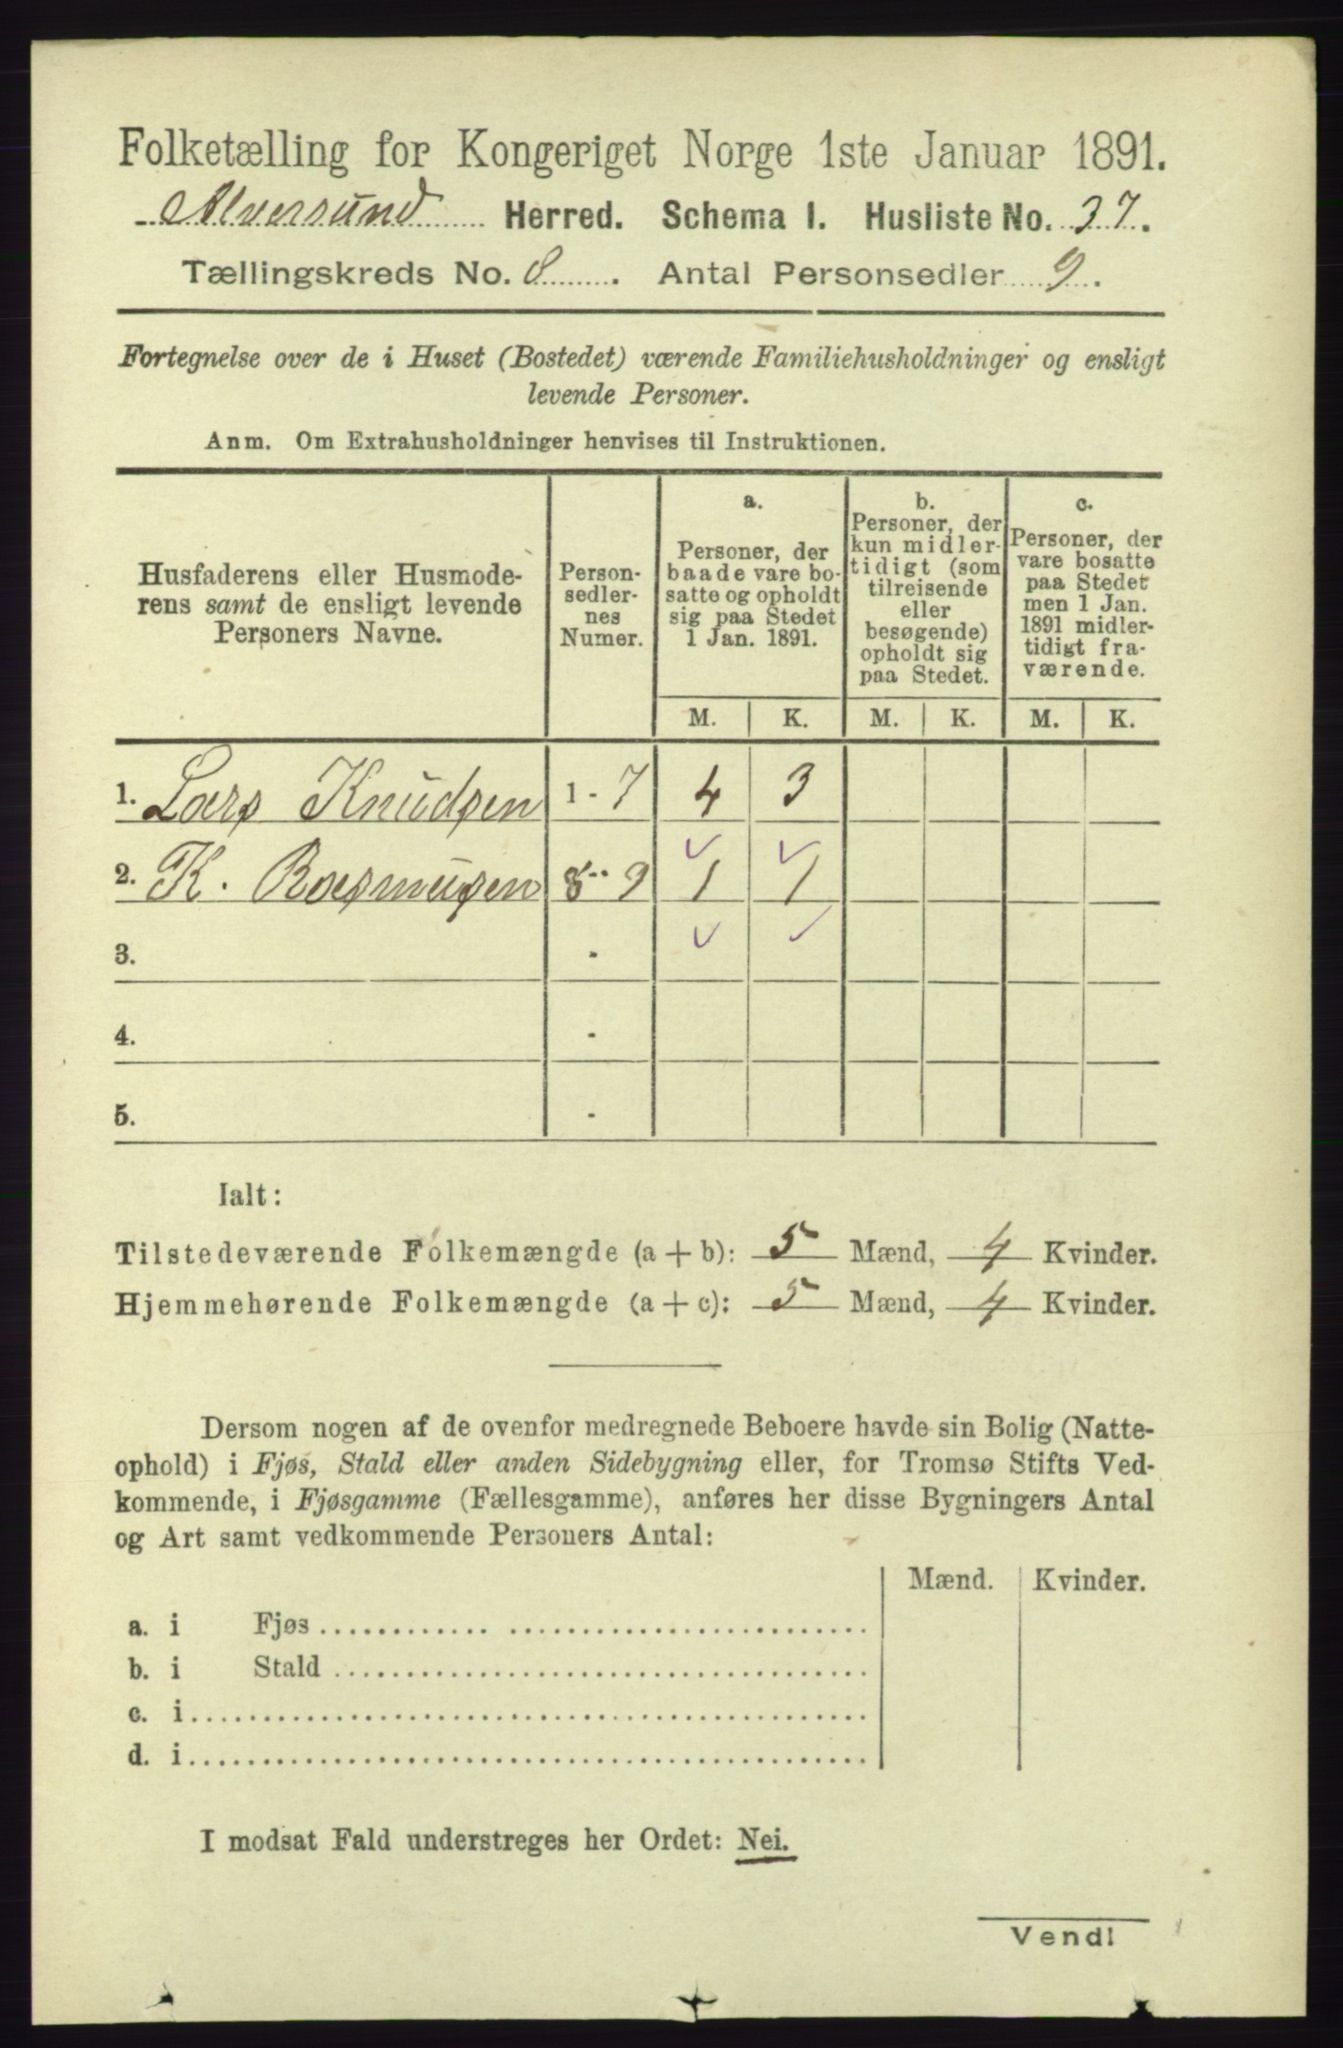 Folketælling for Kongeriget Norge 1ste Januar 1891.
Alversund Herred. Schema I. Husliste No. 37.
Tællingskreds No. 8. Antal Personsedler 9.
Fortegnelse over de i Huset (Bostedet) værende Familiehusholdninger og ensligt
levende Personer.
Anm. Om Extrahusholdninger henvises til Instruktionen.
Husfaderens eller Husmode-
rens samt de ensligt levende
Personers Navne.
Person-
sedler-
nes
Numer.
a.
Personer, der
baade vare bo-
satte og opholdt
sig paa Stedet
1 Jan. 1891.
b.
Personer, der
kun midler-
tidigt (som
tilreisende
eller
besøgende)
opholdt sig
paa Stedet.
c.
Personer, der
vare bosatte
paa Stedet
men 1 Jan.
1891 midler-
tidigt fra-
værende.
M. K. M. K. M. K.
1. Lars Knudsen 1 - 7 4 3
2. K. Rasmusen 8 - 9 1 1
3. -
4. -
5. -
Ialt:
Tilstedeværende Folkemængde (a + b): 5 Mænd, 4 Kvinder.
Hjemmehørende Folkemængde (a + c): 5 Mænd, 4 Kvinder.
Dersom nogen af de ovenfor medregnede Beboere havde sin Bolig (Natte-
ophold) i Fjøs, Stald eller anden Sidebygning eller, for Tromsø Stifts Ved-
kommende, i Fjøsgamme (Fællesgamme), anføres her disse Bygningers Antal
og Art samt vedkommende Personers Antal:
Mænd. Kvinder.
a. i Fjøs
b. i Stald
c. i
d. i
I modsat Fald understreges her Ordet: Nei.
Vend!